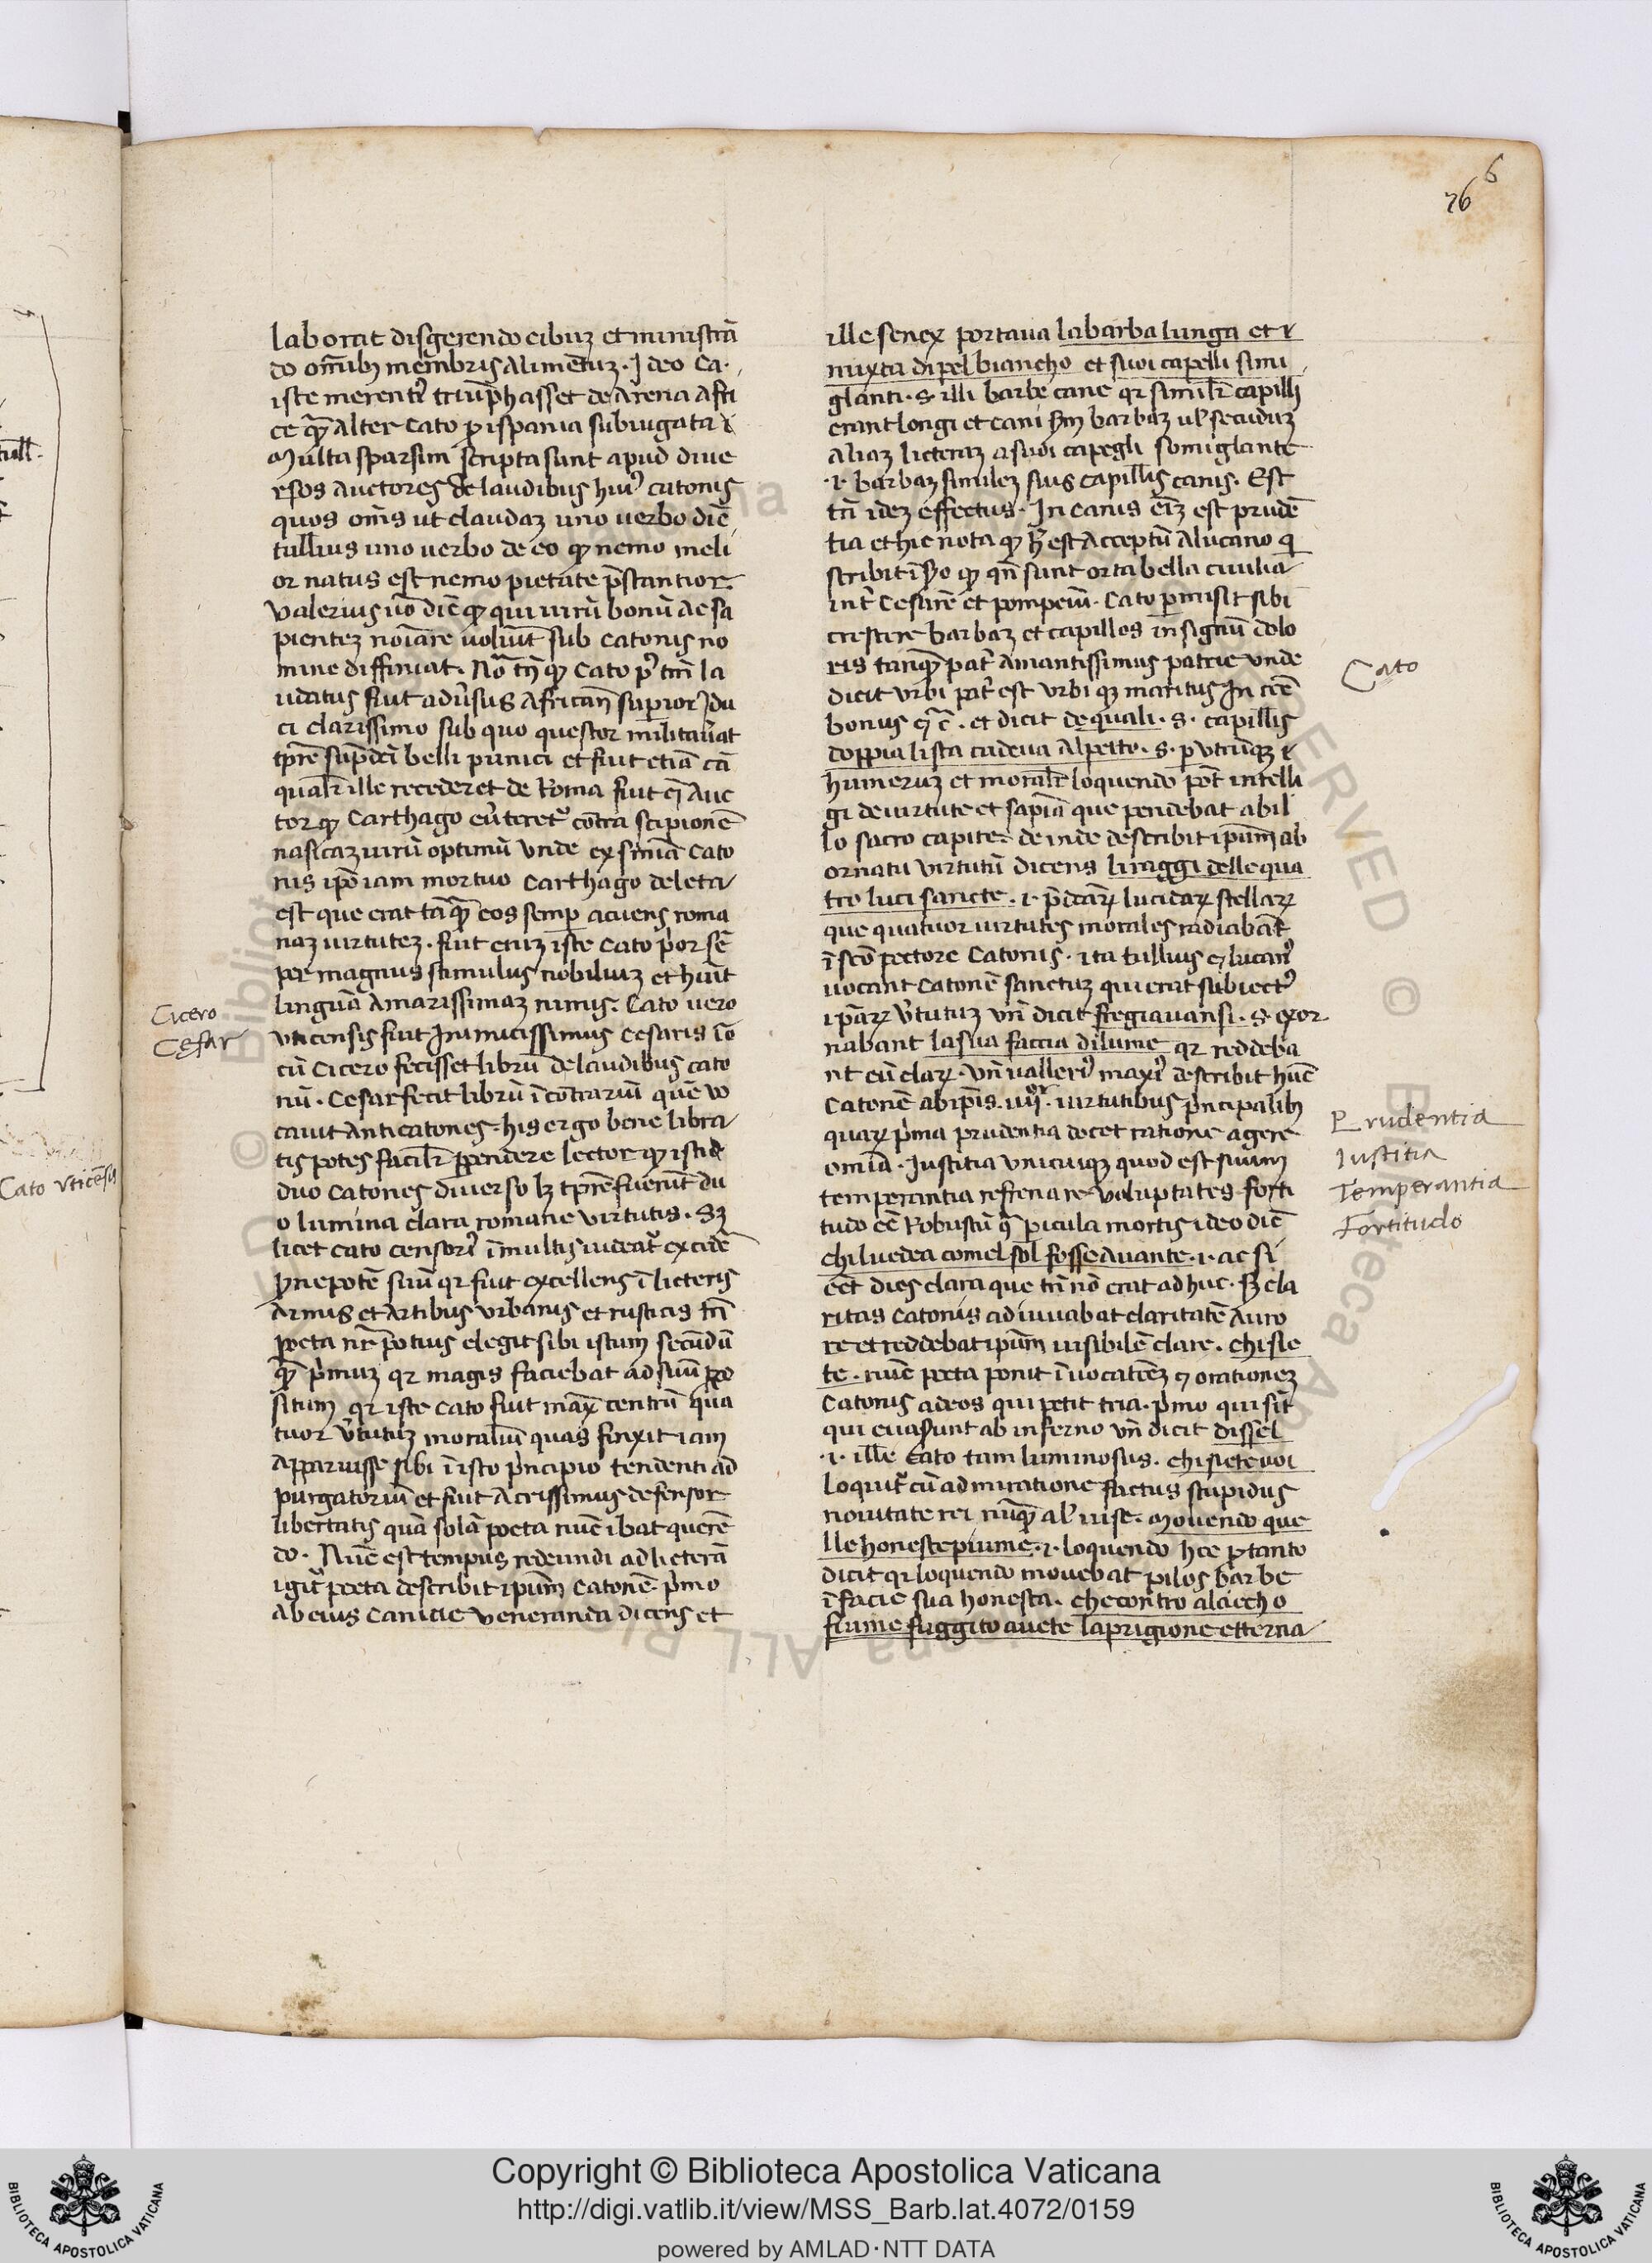 76 6
laborat disgerendo cibuz et ministrā
do om̄ibꝫ membris alimētuz. Ideo Ca.
iste merentꝰ triūphasset de arena afri
ce qꝫ alter Cato ꝑ ispania subiugata ⁊
Multa sparsim scripta sunt apud diue
rsos auctores de laudibus huiꝰ catonis
quos om̄s ut claudaz uno uerbo dic̄
tullius uno uerbo de eo ꝙ nemo meli
or natus est nemo pietate p̄stantior
Valerius u͞o dic̄ ꝙ qui uirū bonū ac sa
pientez noīare uoluīt sub catonis no
mine diffiniat. No͞a tn̄ ꝙ Cato p͛ tm̄ la
udatus fuit adūsus african̄ superiorē du
ci clarissimo sub quo questor militauāt
tp̄re sup̄dc̄i belli punici et fuit etiā cā
qualr̄ ille recederet de Roma fuit ⁊ auc
tor ꝙ Carthago eūteretᷣ cōtra scipionē
nasicaz uirū optimū unde ex sn̄iā Cato
nis ip̄o iam mortuo Carthago deleta
est que erat tāqꝫ cos semp acuens roma
naz uirtutez. fuit enīz iste Cato p̓or sē
per magnus stimulus nobiliuz et huīt
linguā amarissimaz nimis. Cato uero
vticensis fuit Inimicissimus Cesaris iō
cū Cicero fecisset librū de laudibus cato
nū. Cesar fecit librū ī cōtrariū quē vo
cauit anticatones. his ergo bene libra
tis potes facilr̄ ꝑpendere lector ꝙ isti
duo catones diuerso lꝫ tp̄re fuerūt du
o lumina clara romane uirtutis. Sꝫ
licet cato censorꝰ ī multis uideatᷣ excidē
ꝓnepotē suū qꝛ fuit excellens ī licteris
Armis et artibus urbanis et rusticis tn̄
poeta nr̄ potius elegit sibi istum secūdū
qꝫ p̓muz qꝛ magis faciebat ad suū ꝓpo
situm qꝛ iste Cato fuit max̄ centrū qua
tuor ūtutuz moraliū quas finxit iam
apparuisse sibi ī isto p̓ncipio tendenti ad
purgatoriū et fuit acrissimus defensor
libertatis quā solā poeta nūc ibat querē
do. Nūc est tempus redeundi ad licterā
igitᷣ poeta describit ip̄um Catonē. p̓mo
ab eius canicie veneranda dicens et
ille senex portaua la barba lunga et ⁊
mixta di pel biancho et suoi capelli simi
glanti. s. illi barbe cane qꝛ simil̄r capilli
erant longi et cani sm̄ barbaz ul̓ secūduz
aliaz licteraz a suoi capegli somiglante
.i. barbaz similez suis capillis canis. Est
tn̄ idez effectus. In canis ēīz est prudē
tia et hic nota ꝙ h̄ est acceptū a lucano q̓
scribit ī p̓o ꝙ qn̄ sunt orta bella ciuilia
int̓ Cesarē et pompeiū. Cato ꝑmisit sibi
crescere barbaz et capillos in signū dolo
ris tanqꝫ pat̓ amantissimus patrie unde
dicit urbi pat̓ est urbi qꝫ maritus In cōē
bonus ⁊ c̄. et dicit de quali. s. capillis
doppia lista cadeua al petto. s. ꝑ utrūqꝫ ⁊
humeruz et moralr̄ loquendo pōt intelli
gi de uirtute et sapīa que pendebat ab il
lo sacro capite. de inde describit ip̄um ab
ornatu uirtutū dicens li raggi delle qua
tro luci sancte. i. p̄dc̄aꝝ lucidaꝝ stellaꝝ
que quatuor uirtutes morales radiabāt
ī sc̄o pectore Catonis. ita tullius ⁊ lucanꝰ
uocant Catonē sanctuz qui erat subiectꝰ
ip̄aꝝ ūtutuz un̄ dicit fregiauansi. s. exor
nabant la sua faccia di lume qꝛ reddeba
nt eū claꝝ. un̄ ualleriꝰ maxiꝰ describit hūc
Catonē ab ip̄is. iiij͛. uirtutibus p̓ncipalibꝫ
quaꝝ p̓ma prudentia docet ratione agere
omīa. Iustitia unicuiqꝫ quod est suum
temperantia refrenare uoluptates forti
tudo eē Robustū ꝯ̄ pericula mortis ideo dic̄
chi luedea come l sol fosse auante. i. ac si
eēt dies clara que tn̄ nō erat ad huc. sꝫ cla
ritas Catonis adiuuabat claritatē auro
re et reddebat ip̄um uisibilē clare. chi sie
te. nūc poeta ponit ī uocatōez ⁊ orationez
Catonis ad eos qui petit tria. p̓mo qui sīt
qui euasunt ab inferno un̄ dicit diss el
.i. ille Cato tam luminosus. chi siete uoi
loquitᷣ cū admiratione factus stupidus
nouitate rei nūqꝫ al̓ uise. mouendo que
lle honeste piume. i. loquendo hec ꝑ tanto
dicit qꝛ loquendo mouebat pilos barbe
ī facie sua honesta. che contro al ciecho
fiume fuggito auete la prigione etterna
Cicero
Cesar
Cato vticēsis
Cato
Prudentia
Iustitia
Temperantia
Fortitudo
Copyright © Biblioteca Apostolica Vaticana
http://digi.vatlib.it/view/MSS_Barb.lat.4072/0159
powered by AMLAD·NTT DATA
BIBLIOTECA APOSTOLICA VATICANA
BIBLIOTECA APOSTOLICA VATICANA